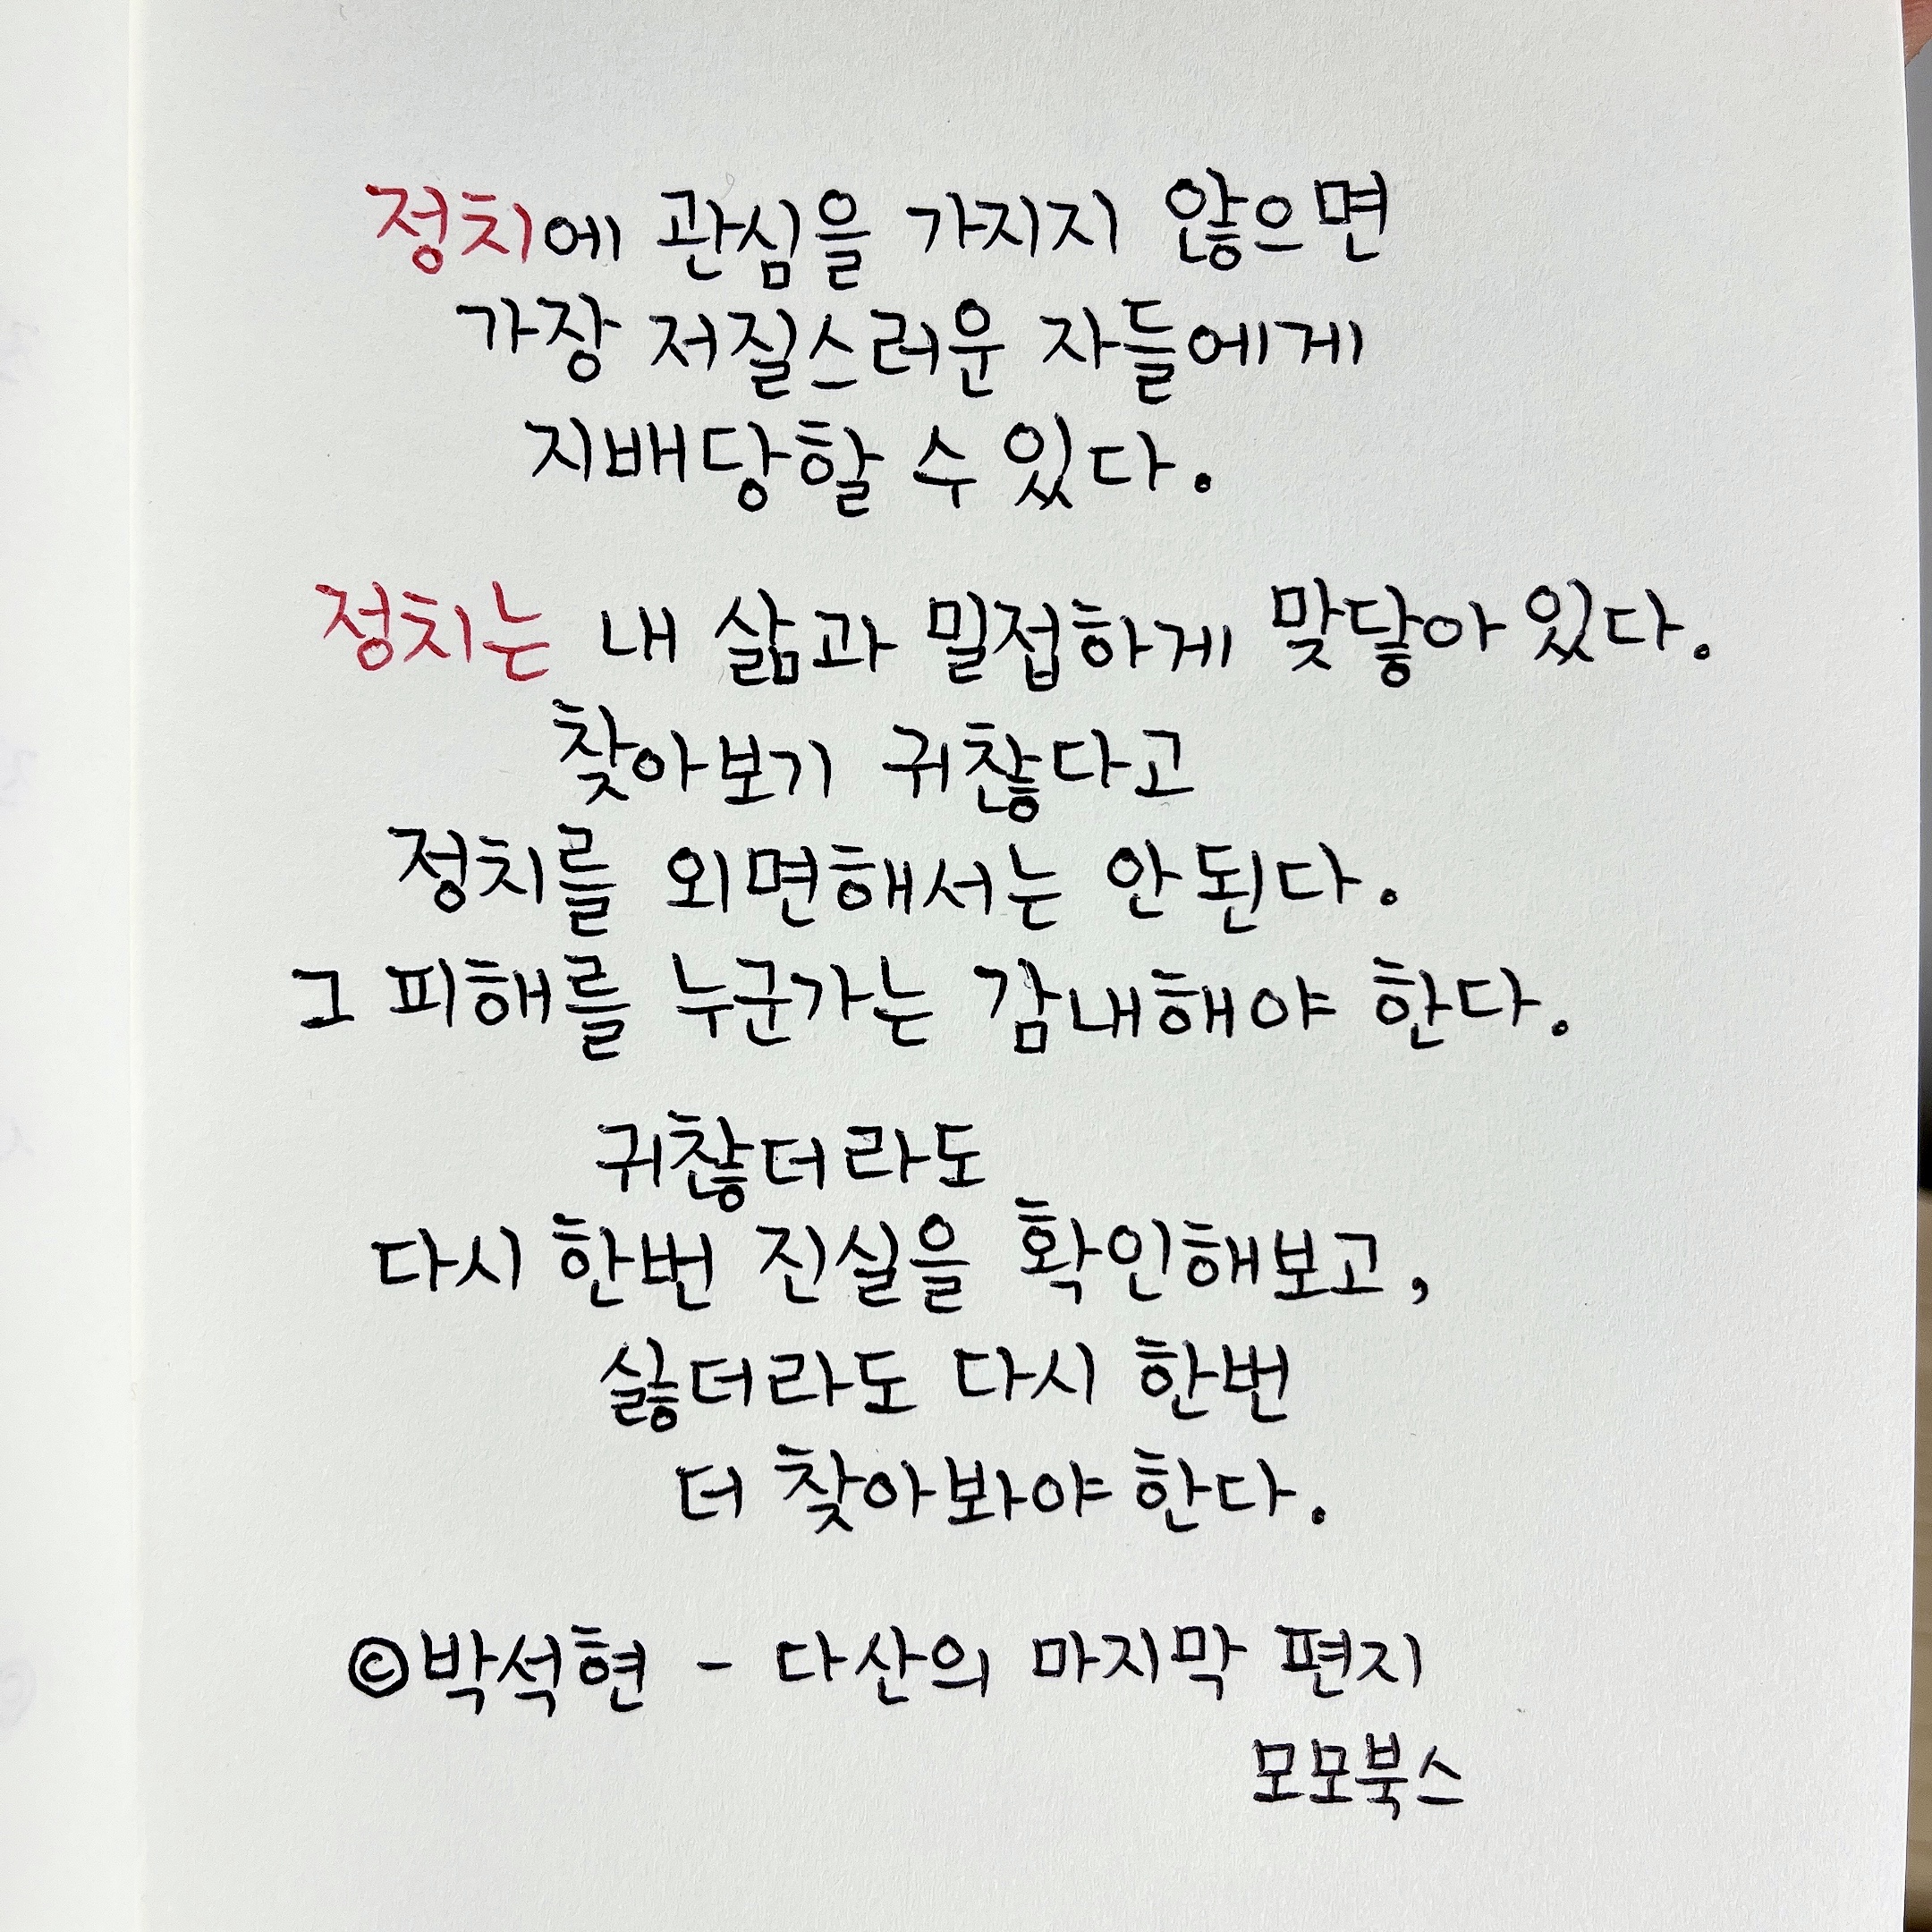 정치에 관심을 가지지 않으면
가장 저질스러운 자들에게
지배당할 수 있다.
정치는 내 삶과 밀접하게 맞닿아 있다.
찾아보기 귀찮다고
정치를 외면해서는 안된다.
그 피해를 누군가는 감내해야 한다.
귀찮더라도
다시 한번 진실을 확인해보고,
싫더라도 다시 한번
더 찾아봐야 한다.
©박석현 - 다산의 마지막 편지
모모북스